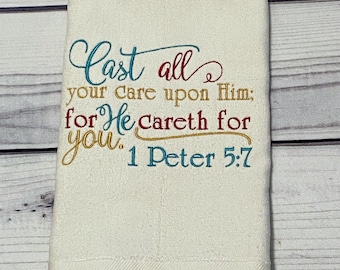 Cast all
your care upon Him;
for He careth for
you.
1 Peter 5:7